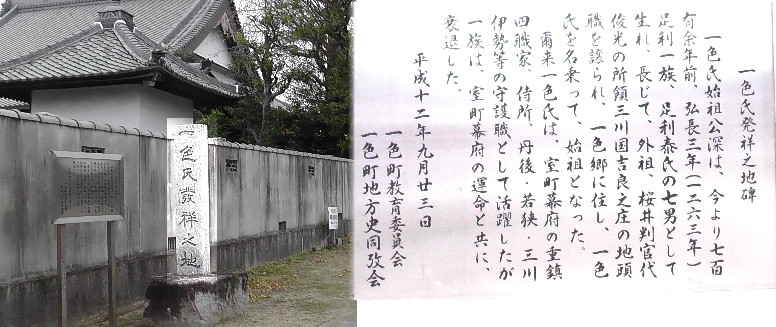 一色氏發祥之地
一色氏発祥之地碑
一色氏始祖公深は、今より七百
有余年前、弘長三年(一二六三年)
足利一族、足利泰氏の七男として
生れ、長じて、外祖、桜井判官代
俊光の所領三川国吉良之庄の地頭
職を譲られ、一色郷に住し、一色
氏を名乗って、始祖となった。
爾来一色氏は、室町幕府の重鎮
四職家、侍所、丹後・若狭・三川
伊勢等の守護職として活躍したが
一族は、室町幕府の運命と共に、
衰退した。
平成十二年九月廿三日
一色町教育委員会
一色町地方史同攷会